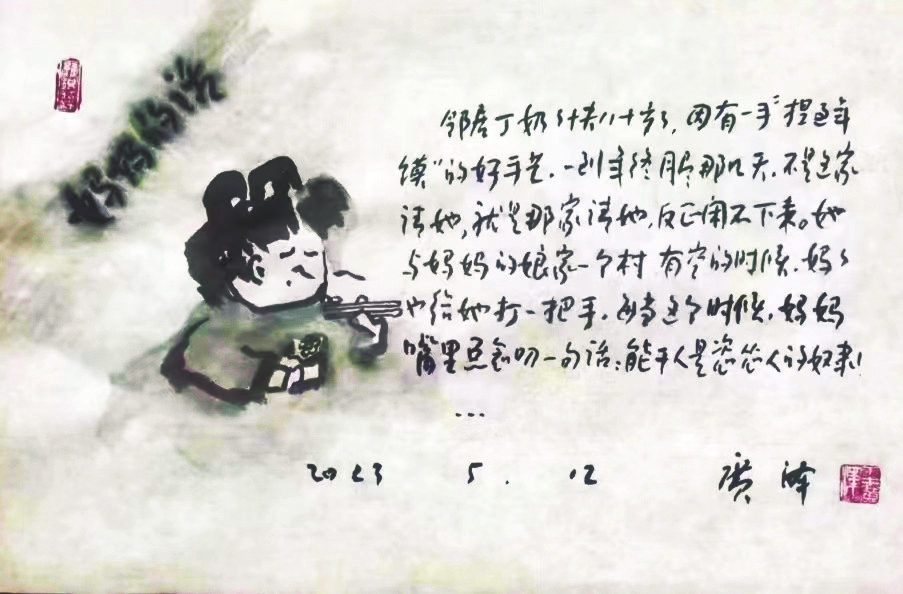 妈妈的话
邻居丁奶奶快八十岁了,因有一手"捏过年
馍"的好手艺.一到年终月尽那几天.不是这家
请她,就是那家请她,反正闲不下来。她
与妈妈的娘家一个村.有空的时候.妈妈
也给她打一把手.每当这个时候.妈妈
嘴里总念叨一句话:能干人是怂人的奴隶!
...
2023 5. 12 广泽